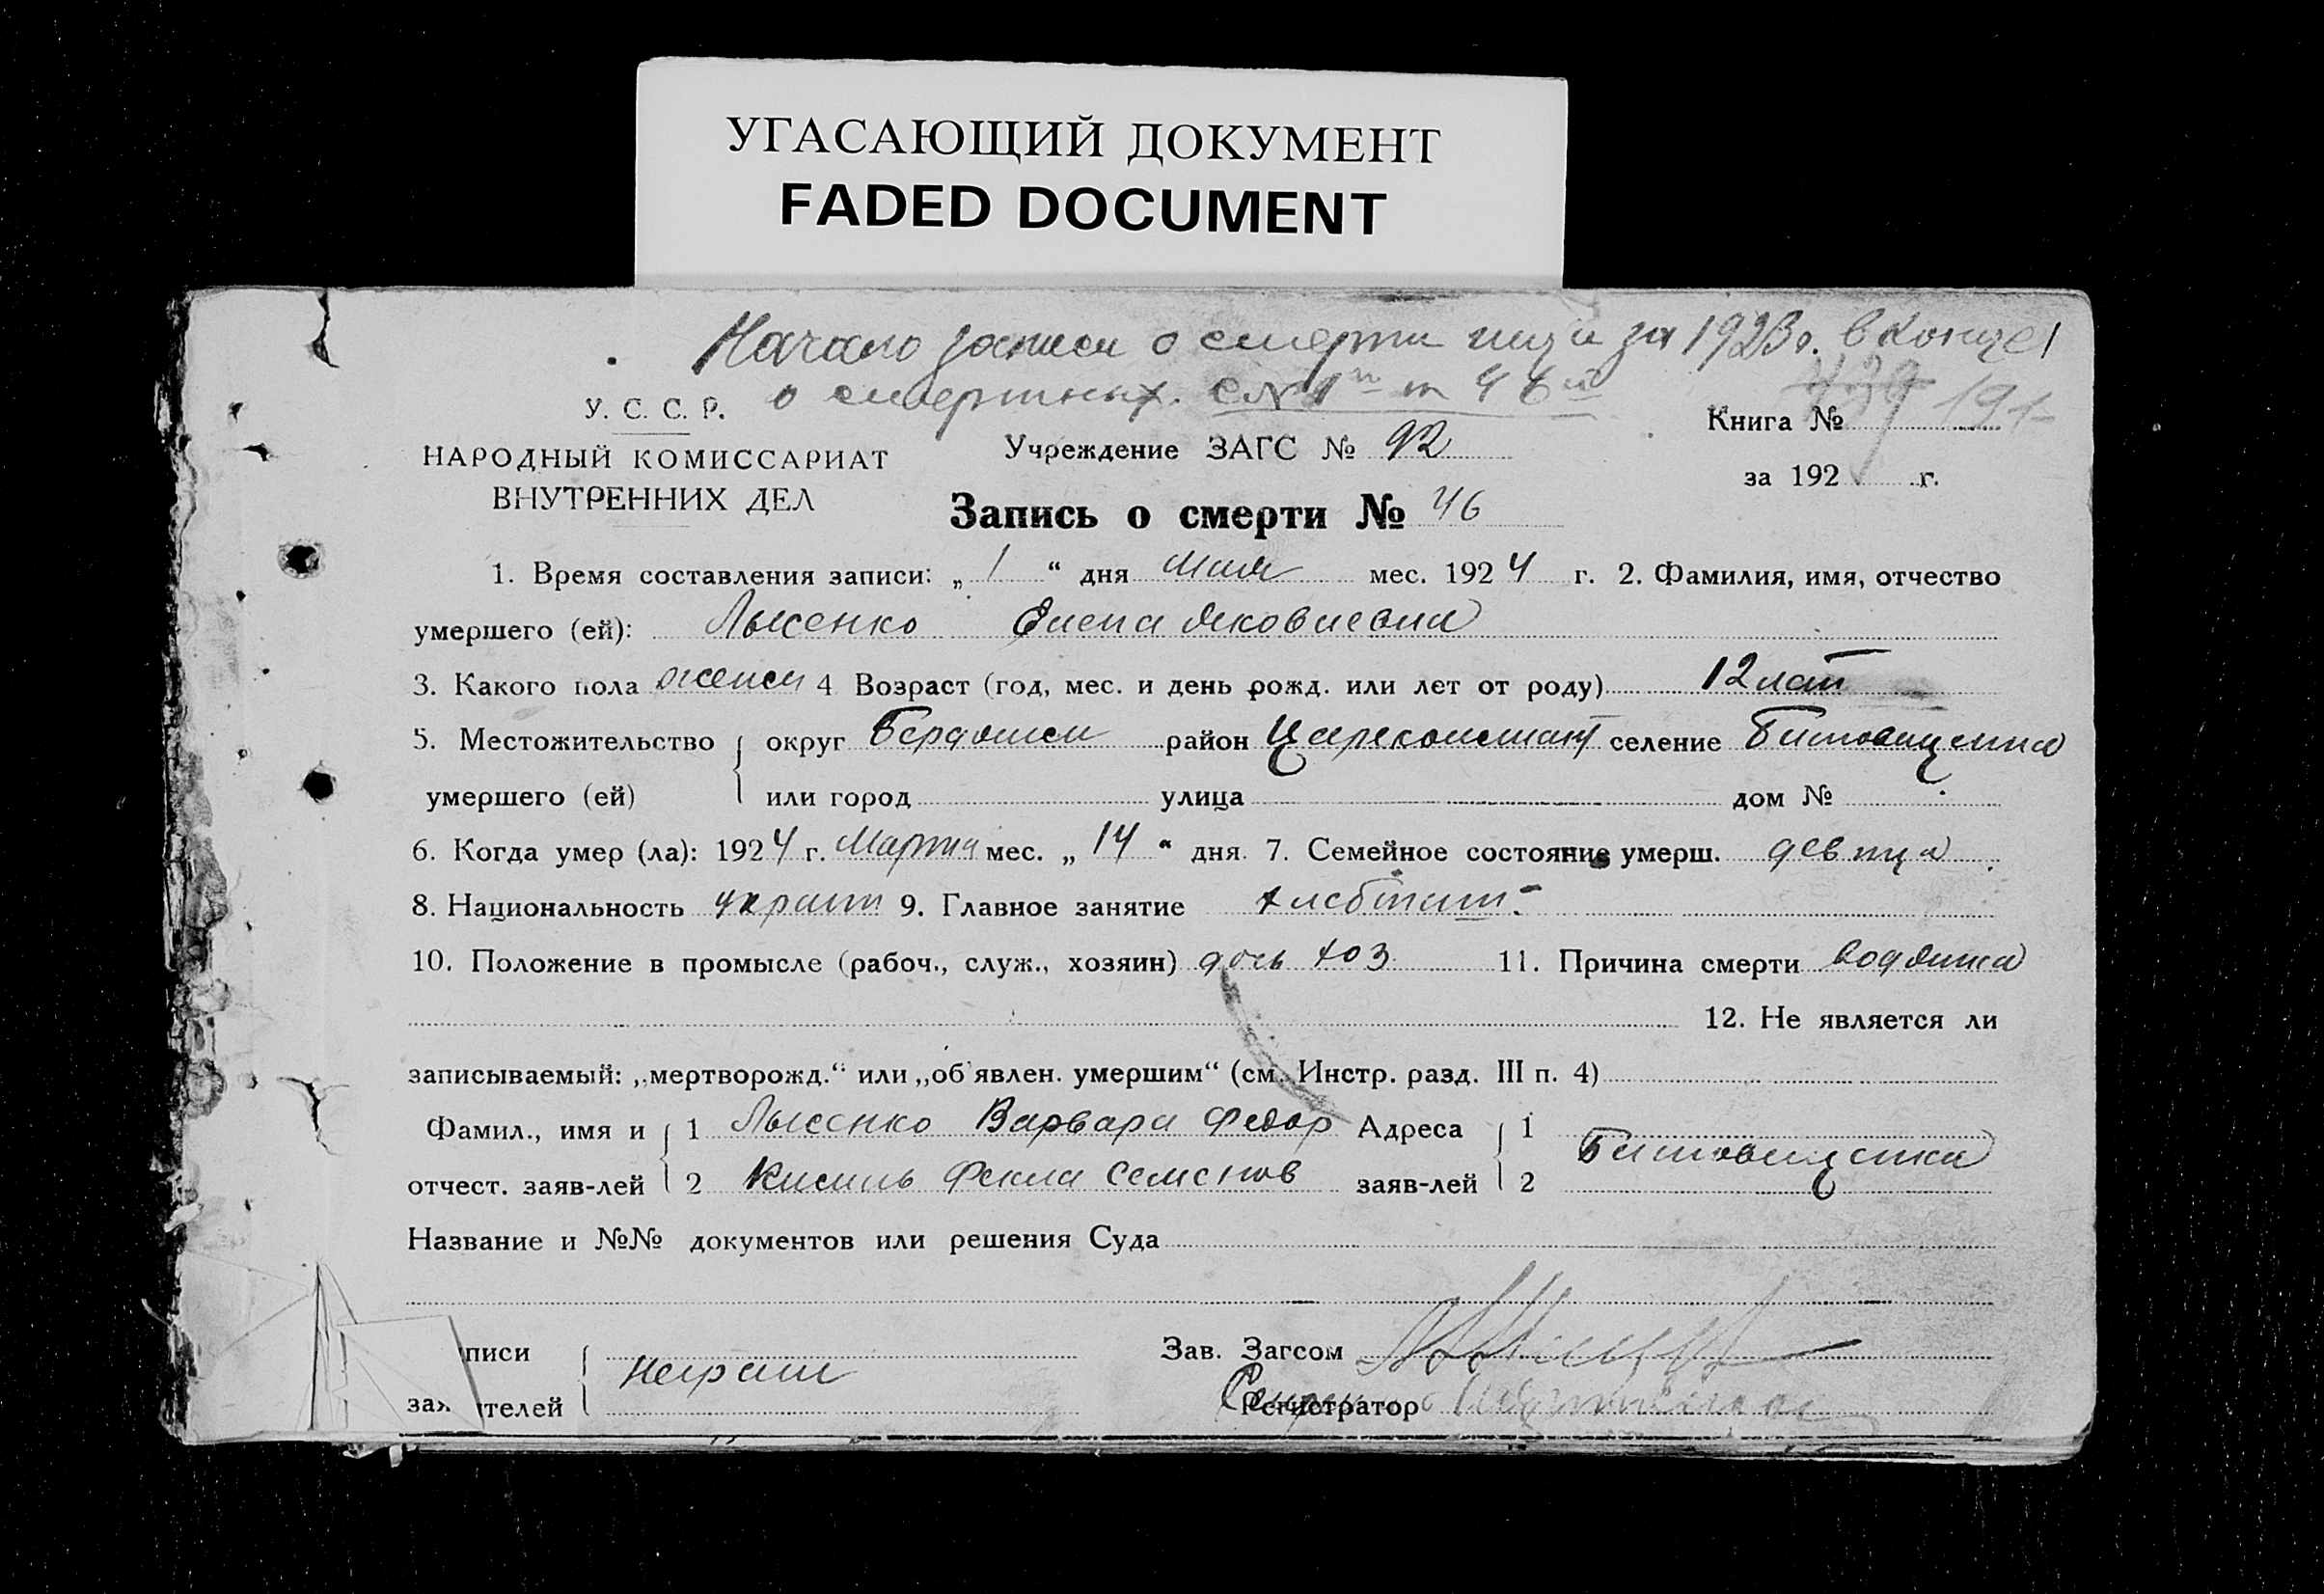 УГАСАЮЩИЙ ДОКУМЕНТ
FADED DOCUMENT
Начало записи о смерти за 1923 г. в конце
о смертных с №1 46
У. С. С. Р.
НАРОДНЫЙ КОМИССАРИАТ
ВНУТРЕННИХ ДЕЛ
Учреждение ЗАГС № 92
Книга №
за 192 г.
Запись о смерти № 46
1. Время составления записи: „ 1 “ дня Мая мес. 1924 г. 2. Фамилия, имя, отчество
умершего (ей): Лысенко Елена Яковлевна
3. Какого пола женск 4 Возраст (год, мес. и день рожд. или лет от роду) 12 лет
5. Местожительство округ Бердянск район Цареконстант селение
умершего (ей) или город улица дом №
6. Когда умер (ла): 1924 г. Марта мес. „ 14 “ дня. 7. Семейное состояние умерш. девица
8. Национальность украин 9. Главное занятие хлебопаш.
10. Положение в промысле (рабоч., служ., хозяин) дочь хоз 11. Причина смерти водянка
12. Не является ли
записываемый: „мертворожд.“ или „об'явлен. умершим“ (см. Инстр. разд. III п. 4)
Фамил., имя и 1 Лысенко Варвара Федор Адреса 1
отчест. заяв-лей 2 Кисиль Фекла Семенов заяв-лей 2
Название и №№ документов или решения Суда
писи
зая ителей неграм
Зав. Загсом
Регистратор